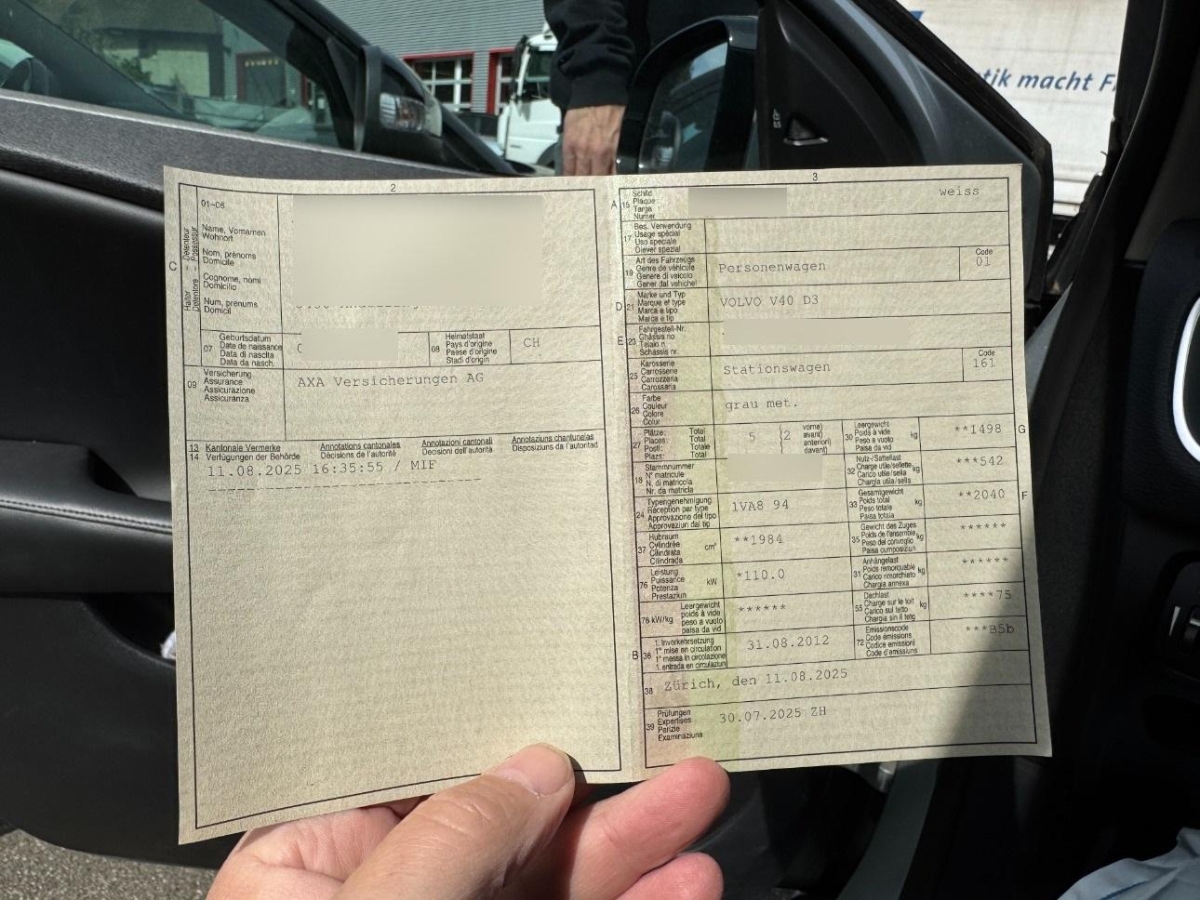 tik macht F
2
01-06
Name, Vornamen
Wohnort
Nom, prénoms
Domicile
Cognome, nomi
Domicilio
Num, prenums
Domicil
C
07
Geburtsdatum
Date de naissance
Data di nascita
Data da nasch.
08
Heimatstaat
Pays d'origine
Paese d'origine
Stadi d'origin
CH
09
Versicherung
Assurance
Assicurazione
Assicuranza
AXA Versicherungen AG
13
14
Kantonale Vermerke
Verfügungen der Behörde
Annotations cantonales
Décisions de l'autorité
Annotazioni cantonali
Decisioni dell'autorità
Annotaziuns chantunalas
Disposiziuns da l'autoritad
11.08.2025 16:35:55 / MIF
3
A
15
Schild
Plaque
Targa
Numer
weiss
17
Bes. Verwendung
Usage spécial
Uso speciale
Diever spezial
19
Art des Fahrzeugs
Genre de véhicule
Genere di veicolo
Gener dal vehichel
Personenwagen
Code
01
D
21
Marke und Typ
Marque et type
Marca e tipo
Marca e tip
VOLVO V40 D3
E
23
Fahrgestell-Nr.
Châssis no
Telaio n.
Schassis nr.
25
Karosserie
Carrosserie
Carrozzeria
Carossaria
Stationswagen
Code
161
26
Farbe
Couleur
Colore
Colur
grau met.
27
Plätze: Total
Places: Total
Posti: Totale
Plazs: Total
5
2
vorne)
avant)
anteriori)
davant)
30
Leergewicht
Poids à vide
Peso a vuoto
Paisa da vid
kg
**1498
G
18
Stammnummer
N° matricule
N. di matricola
Nr. da matricla
32
Nutz-/Sattellast
Charge utile/sellette
Carico utile/sella
Chargia utila/sella
kg
***542
24
Typengenehmigung
Réception par type
Approvazione del tipo
Approvaziun dal tip
1VA8 94
33
Gesamtgewicht
Poids total
Peso totale
Paisa totala
kg
**2040
F
37
Hubraum
Cylindrée
Cilindrata
Cilindrada
cm³
**1984
35
Gewicht des Zuges
Poids de l'ensemble
Peso del convoglio
Paisa cumposiziun
kg
******
76
Leistung
Puissance
Potenza
Prestaziun
kW
*110.0
31
Anhängelast
Poids remorquable
Carico rimorchiato
Chargia annexa
kg
******
78 kW/kg
Leergewicht
poids à vide
peso a vuoto
paisa da vid
******
55
Dachlast
Charge sur le toit
Carico sul tetto
Chargia sin il tetg
kg
****75
B
36
1. Inverkehrsetzung
1re mise en circulation
1a messa in circolazione
1. entrada en circulaziun
31.08.2012
72
Emissionscode
Code émissions
Codice emissioni
Code d'emissiuns
***B5b
38
Zürich, den 11.08.2025
39
Prüfungen
Expertises
Perizie
Examinaziuns
30.07.2025 ZH